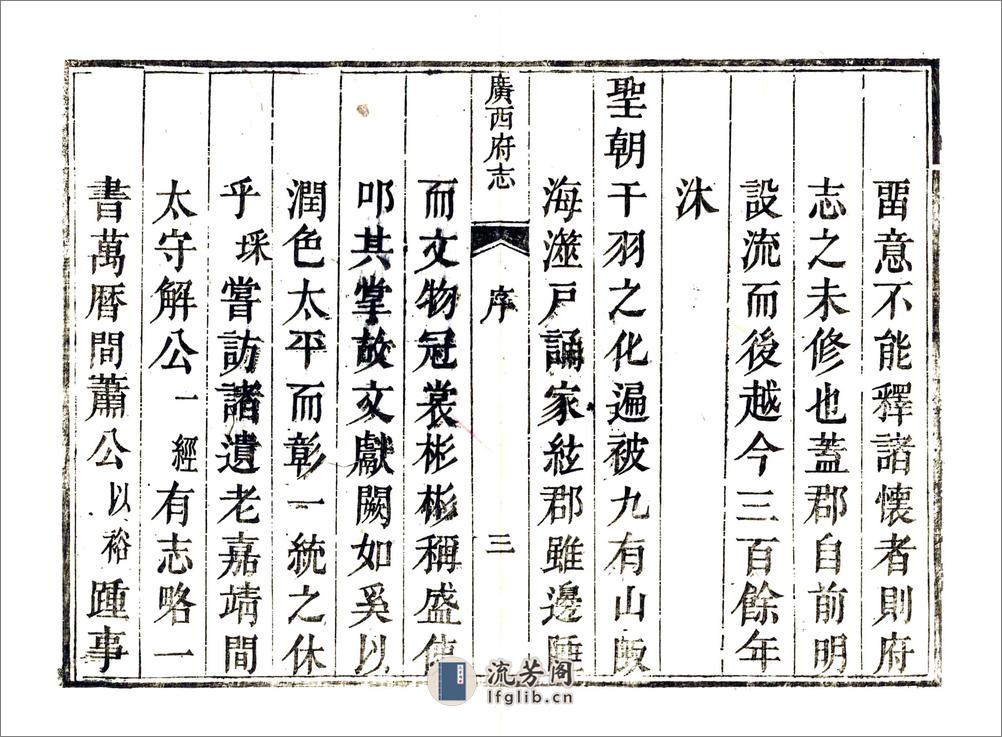 畱意不能釋諸懷者則府
志之未修也蓋郡自前明
設流而後越今三百餘年
沐
聖朝干羽之化遍被九有山陬
海澨戸誦家絃郡雖邊陲
廣西府志
序
三
而文物冠裳彬彬稱盛使
叩其掌故文獻闕如奚以
潤色太平而彰一統之休
乎琛嘗訪諸遺老嘉靖間
太守解公一經有志略一
書萬曆間蕭公以裕踵事
流芳阁
lfglib.cn